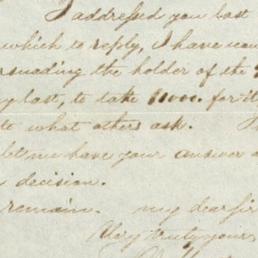 I addressed you last
which to reply, I have
the holder of the
last, to take $1000. for it
to what others ask.
let me have your answer
decision.
remain. my dear Sir
Very truly yours